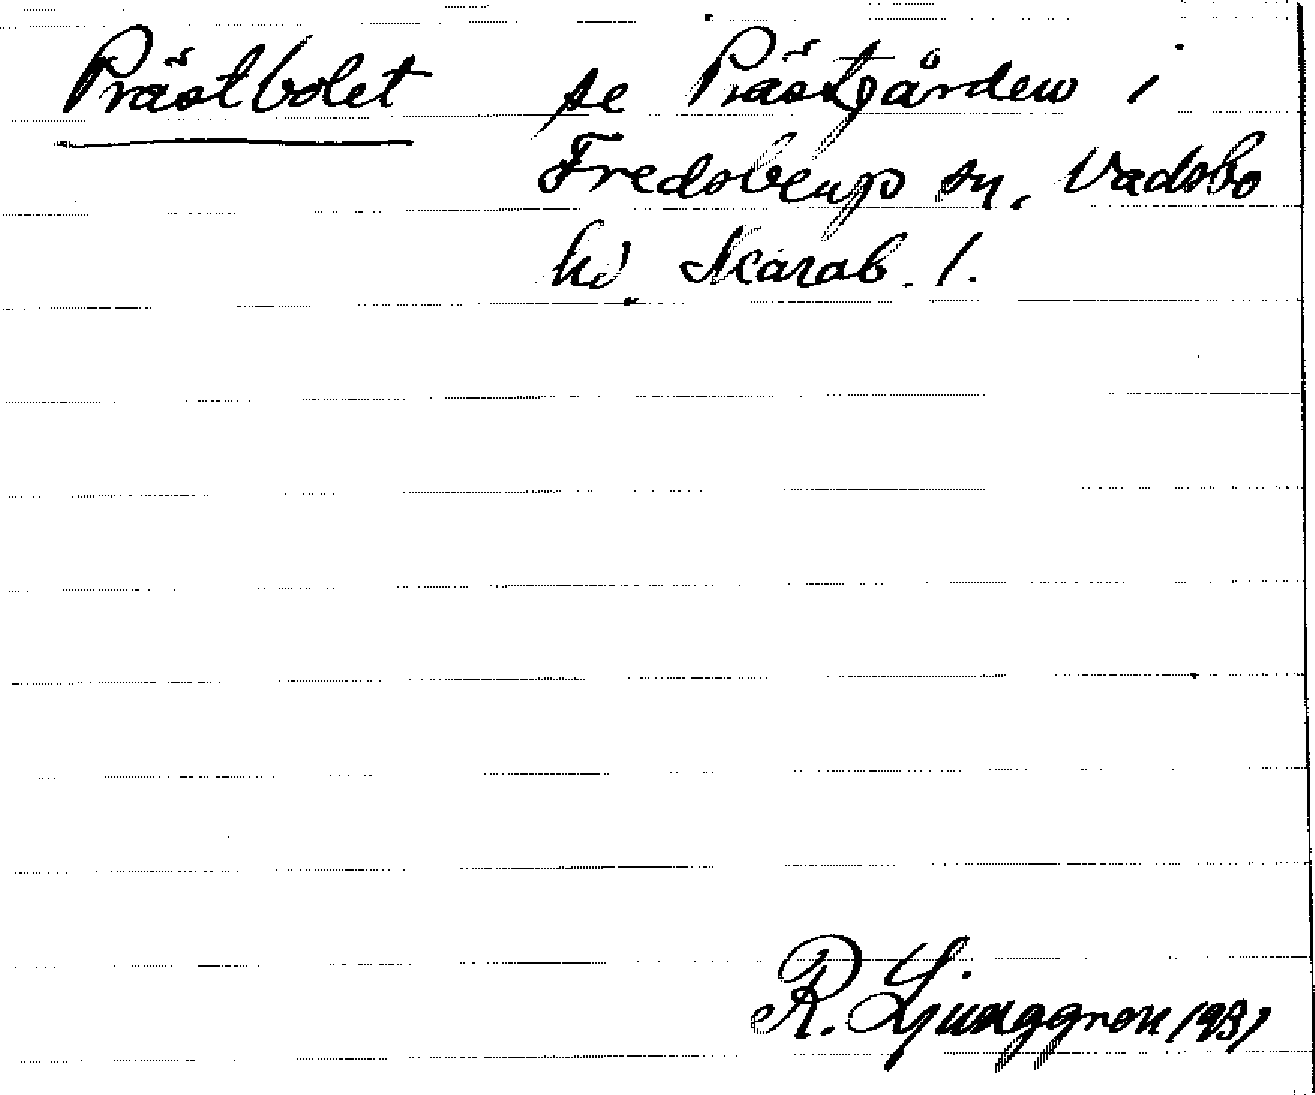 Prästbolet se Prästgården i
Fredsbergs sn, Vadsbo
hd. Skarab. l.
R. Ljunggren 1931